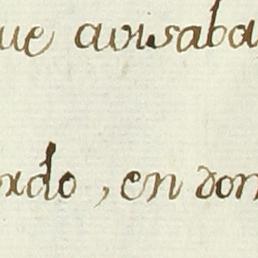 ue avisaba
rdo, en don